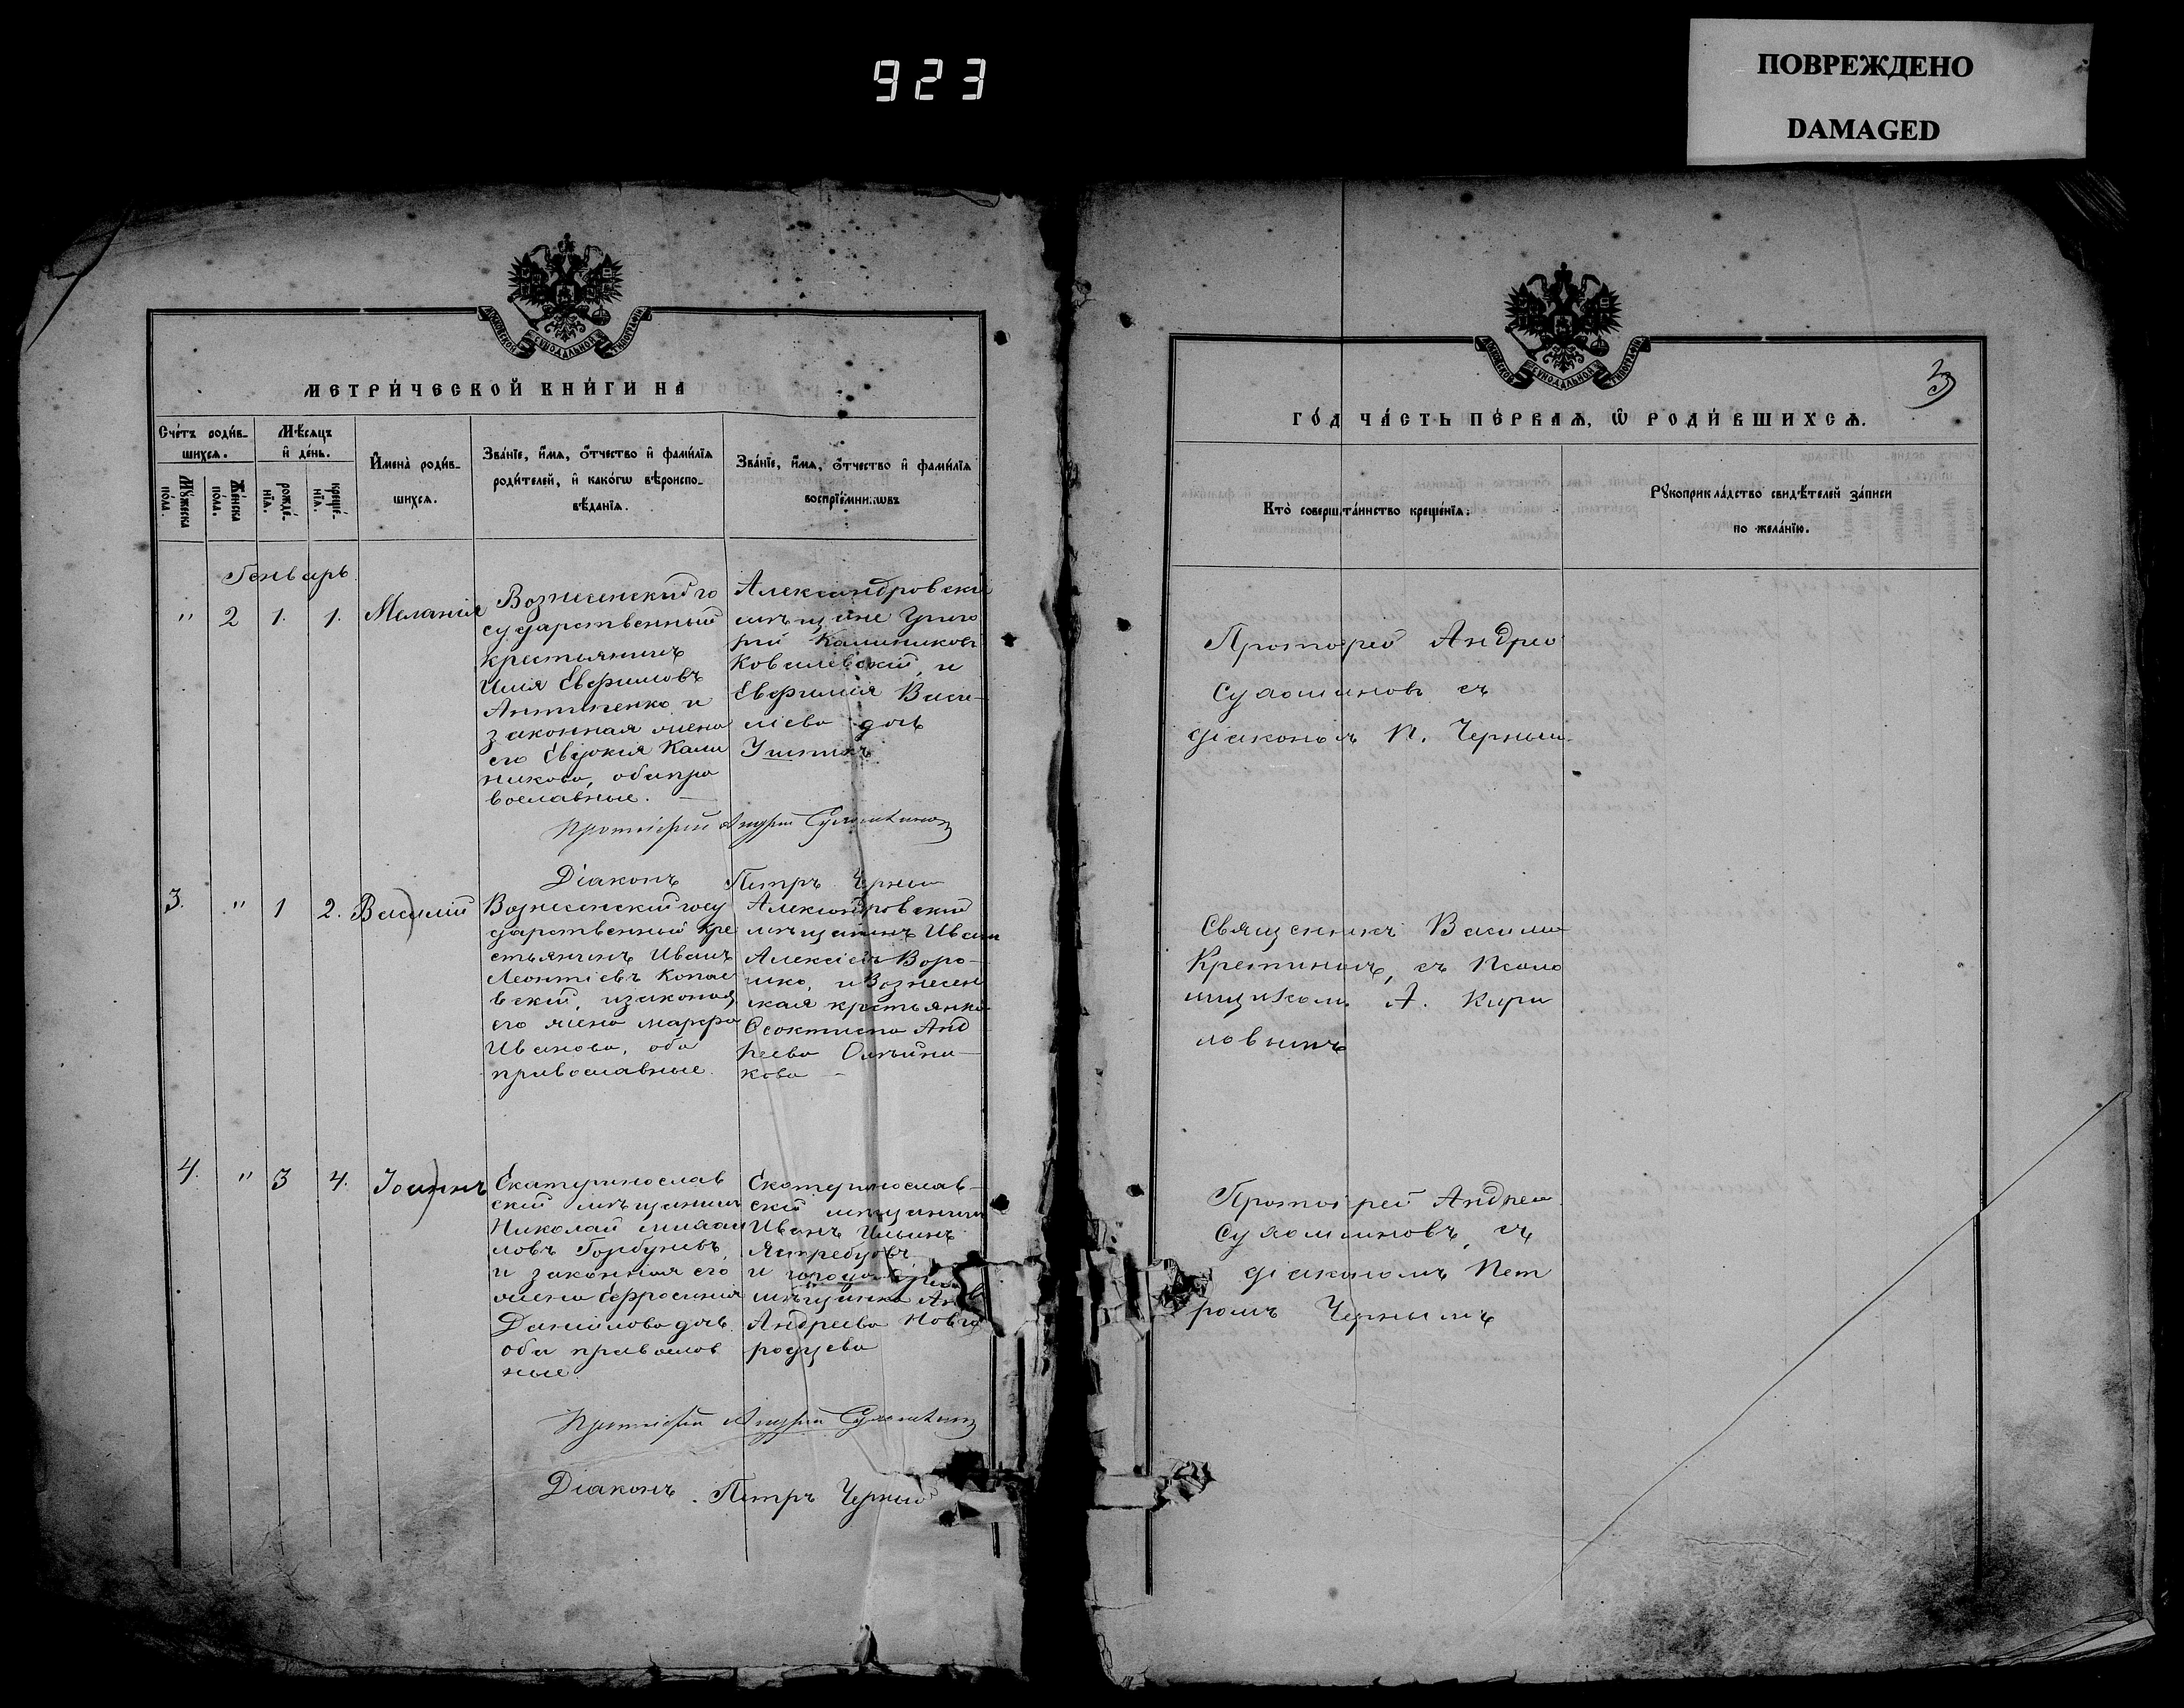 923
ПОВРЕЖДЕНО
DAMAGED
МОСКОВСКОЙ СѴНОДАЛЬНОЙ ТИПОГРАФІИ
МЕТРИ́ЧЕСКОЙ КНИ́ГИ НА
Сче́тъ роди́в-
шихсѧ.
Мꙋ́жеска по́ла.
Же́нска по́ла.
Мѣ́сѧцъ
и҆ де́нь.
рожде́-
нїѧ.
креще́-
нїѧ.
И҆мена̀ роди́в-
шихсѧ.
Зва́нїе, и҆́мѧ, ѻ҆́тчество и҆ фами́лїѧ
роди́телей, и҆ како́гѡ вѣроиспо-
вѣ́данїѧ.
Зва́нїе, и҆́мѧ, ѻ҆́тчество и҆ фами́лїѧ
воспрїе́мникѡвъ
Генварь
" 2 1. 1. Меланія
Вознесенский го
сударственный
крестьянинъ
Илія Евфимовъ
Антипенко и
законная жена
его Евдокія Кали
никова, оба пра
вославные. —
Александровскій
мѣщане Григо
рій Калиниковъ
Ковалевскій, и
Евфимія Васи-
ліева дочь
Протоіерей Андрей
Діаконъ Петръ Черный
3. " 1 2. Василій
Вознесенскій госу
дарственный кре
стьянинъ Иванъ
Леонтіевъ Копае
вскій, изаконая
его жена марфа
Иванова, оба
православные.
Александровскій
мѣщанинъ Иван
Алексіевъ Воро-
шко, и Вознесен
ская крестьянка
Ѳеоктиста Анд
реева Олѣйни-
кова —
4. " 3 4. Іоаннъ
Екатеринослав
скій мѣщанинъ
Николай михаи
ловъ Горбуневъ,
и законная его
жена Ефросинія
Данилова дочь
оба православ
ные.
Екатеринослав-
скій мѣщанинъ
Иванъ Ильинъ
Ястребцовъ
мѣщанка
Андреева Новго
родцева
Протоіерей Андрей
Діаконъ. Петръ Черный
МОСКОВСКОЙ СѴНОДАЛЬНОЙ ТИПОГРАФІИ
3
ГО́Д ЧА́СТЬ ПЕ́РВАѦ, Ѽ РОДИ́ВШИХСѦ.
Кто̀ соверш. та́инство креще́нїѧ:
Рꙋкоприкла́дство свидѣ́телей за́писи
по жела́нїю.
Протоіерей Андрей
съ
діакономъ П. Черным
Священникъ Василій
съ Псало
мщиком А. Кири
ловымъ
Протоіерей Андрей
съ
діакономъ Пет
ромъ Чернымъ